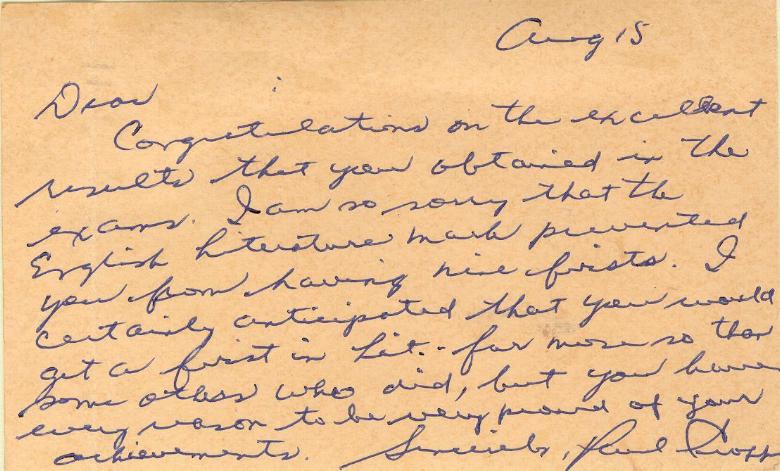 Aug 15
Dear
Congratulations on the excellent
results that you obtained in the
exams. I am so sorry that the
English literature mark prevented
you from having nine firsts. I
certainly anticipated that you would
get a first in Lit. - far more so than
some others who did, but you have
every reason to be very proud of your
achievements. Sincerely, Paul